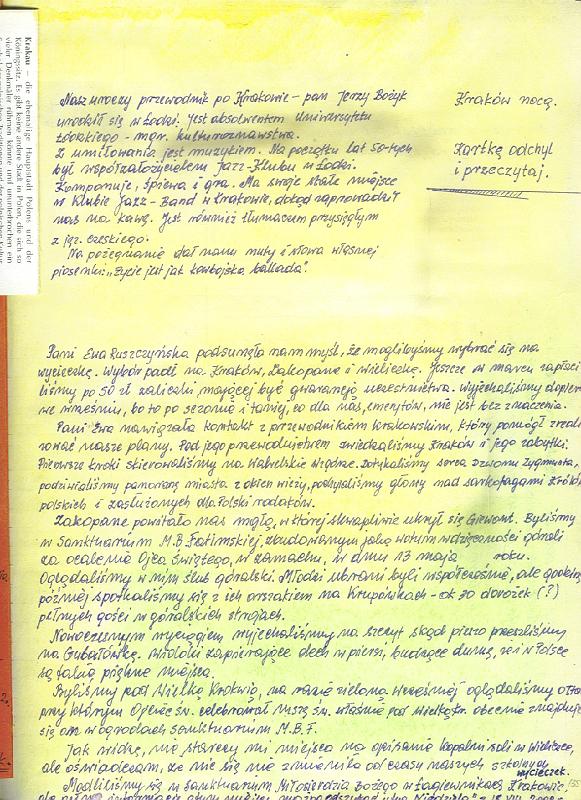 Krakau – die ehemalige Hauptstadt Polens und der
Königssitz. Es gibt keine andere Stadt in Polen, die sich so
vieler Denkmäler rühmen könnte und ununterbrochen ein
Nasz uroczy przewodnik po Krakowie – pan Jerzy Bożyk
urodził się w Łodzi. Jest absolwentem Uniwersytetu
Łódzkiego – mgr. kulturoznawstwa.
Z umiłowania jest muzykiem. Na początku lat 50-tych
był współzałożycielem Jazz-Klubu w Łodzi.
Komponuje, śpiewa i gra. Ma swoje stałe miejsce
w Klubie Jazz-Band w Krakowie, dokąd zaprowadził
nas na kawę. Jest również tłumaczem przysięgłym
z jęz. czeskiego.
Na pożegnanie dał nam nuty i słowa własnej
piosenki: „Życie jest jak kowbojska ballada".
Kraków nocą.
Kartkę odchyl
i przeczytaj.
Pani Ewa Ruszczyńska podsunęła nam myśl, że moglibyśmy wybrać się na
wycieczkę. Wybór padł na Kraków, Zakopane i Wieliczkę. Jeszcze w marcu zapłaci
liśmy po 50 zł zaliczki mającej być gwarancją uczestnictwa. Wyjechaliśmy dopiero
we wrześniu, bo to po sezonie i taniej, co dla nas, emerytów, nie jest bez znaczenia.
Pani Ewa nawiązała kontakt z przewodnikiem krakowskim, który pomógł zreali
zować nasze plany. Pod jego przewodnictwem zwiedzaliśmy Kraków i jego zabytki.
Pierwsze kroki skierowaliśmy na Wawelskie Wzgórze. Dotykaliśmy serca dzwonu Zygmunta,
podziwialiśmy panoramę miasta z okien wieży, pochylaliśmy głowy nad sarkofagami Królów
polskich i zasłużonych dla Polski rodaków.
Zakopane powitało nas mgłą, w której skwapliwie ukrył się Giewont. Byliśmy
w Sanktuarium M.B. Fatimskiej, zbudowanym jako wotum wdzięczności górali
za ocalenie Ojca Świętego, w zamachu, w dniu 13 maja roku.
Oglądaliśmy w nim ślub góralski. Młodzi ubrani byli współcześnie, ale godzinę
później spotkaliśmy się z ich orszakiem na Krupówkach – ok. 30 dorożek (?)
pełnych gości w góralskich strojach.
Nowoczesnym wyciągiem wyjechaliśmy na szczyt skąd pieszo przeszliśmy
na Gubałówkę. Widoki zapierające dech w piersi, budzące dumę, że i w Polsce
są takie piękne miejsca.
Byliśmy pod Wielką Krokwią, na razie zieloną. Wcześniej oglądaliśmy ołtarz
przy którym Ojciec Św. celebrował mszę św. właśnie pod Wielką Kr. obecnie znajduje
się on w ogrodach sanktuarium M.B.F.
Jak widzę, nie starczy mi miejsca na opisanie kopalni soli w Wieliczce,
ale oświadczam, że nic się nie zmieniło od czasu naszych szkolnych
wycieczek.
Modliliśmy się w Sanktuarium Miłosierdzia Bożego w Łagiewnikach, Krakowie,